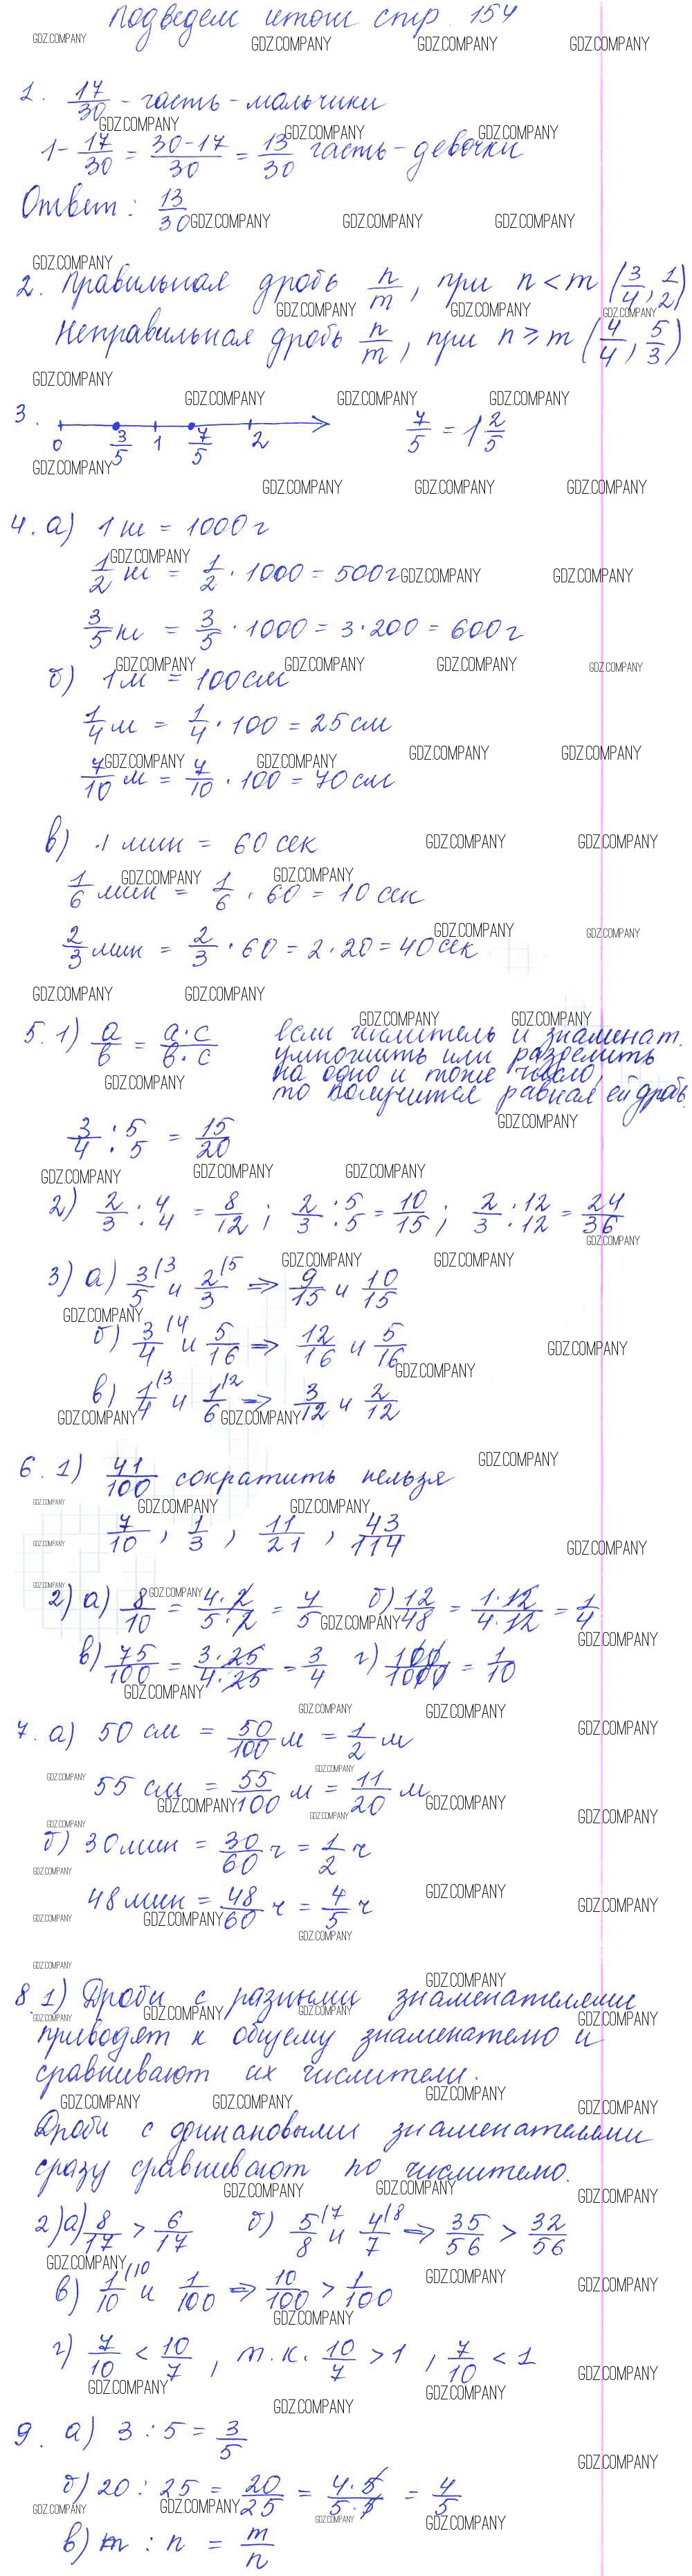 Подведем итоги стр. 154
1. 17/30 - часть - мальчики
1 - 17/30 = (30-17)/30 = 13/30 часть - девочки
Ответ: 13/30
2. Правильная дробь n/m, при n < m (3/4, 1/2)
Неправильная дробь n/m, при n ≥ m (4/4, 5/3)
3. 0 3/5 1 7/5 2 7/5 = 1 2/5
4. а) 1 кг = 1000 г
1/2 кг = 1/2 · 1000 = 500 г
3/5 кг = 3/5 · 1000 = 3 · 200 = 600 г
б) 1 м = 100 см
1/4 м = 1/4 · 100 = 25 см
7/10 м = 7/10 · 100 = 70 см
в) 1 мин = 60 сек
1/6 мин = 1/6 · 60 = 10 сек
2/3 мин = 2/3 · 60 = 2 · 20 = 40 сек
5. 1) a/b = (a · c)/(b · c) если числитель и знаменат.
умножить или разделить
на одно и тоже число,
то получится равная ей дробь.
3/4 : 5/5 = 15/20
2) 2/3 : 4/4 = 8/12; 2/3 : 5/5 = 10/15; 2/3 : 12/12 = 24/36
3) а) 3/5 \3 и 2/3 \5 => 9/15 и 10/15
б) 3/4 \4 и 5/16 => 12/16 и 5/16
в) 1/4 \3 и 1/6 \2 => 3/12 и 2/12
6. 1) 41/100 сократить нельзя
7/10, 1/3, 11/21, 43/114
2) а) 8/10 = (4 · 2)/(5 · 2) = 4/5 б) 12/48 = (1 · 12)/(4 · 12) = 1/4
в) 75/100 = (3 · 25)/(4 · 25) = 3/4 г) 100/1000 = 1/10
7. а) 50 см = 50/100 м = 1/2 м
55 см = 55/100 м = 11/20 м
б) 30 мин = 30/60 ч = 1/2 ч
48 мин = 48/60 ч = 4/5 ч
8. 1) Дроби с разными знаменателями
приводят к общему знаменателю и
сравнивают их числители.
Дроби с одинаковыми знаменателями
сразу сравнивают по числителю.
2) а) 8/17 > 6/17 б) 5/8 \7 и 4/7 \8 => 35/56 > 32/56
в) 1/10 \10 и 1/100 => 10/100 > 1/100
г) 7/10 < 10/7, т.к. 10/7 > 1, 7/10 < 1
9. а) 3 : 5 = 3/5
б) 20 : 25 = 20/25 = (4 · 5)/(5 · 5) = 4/5
в) m : n = m/n
GDZ.COMPANY